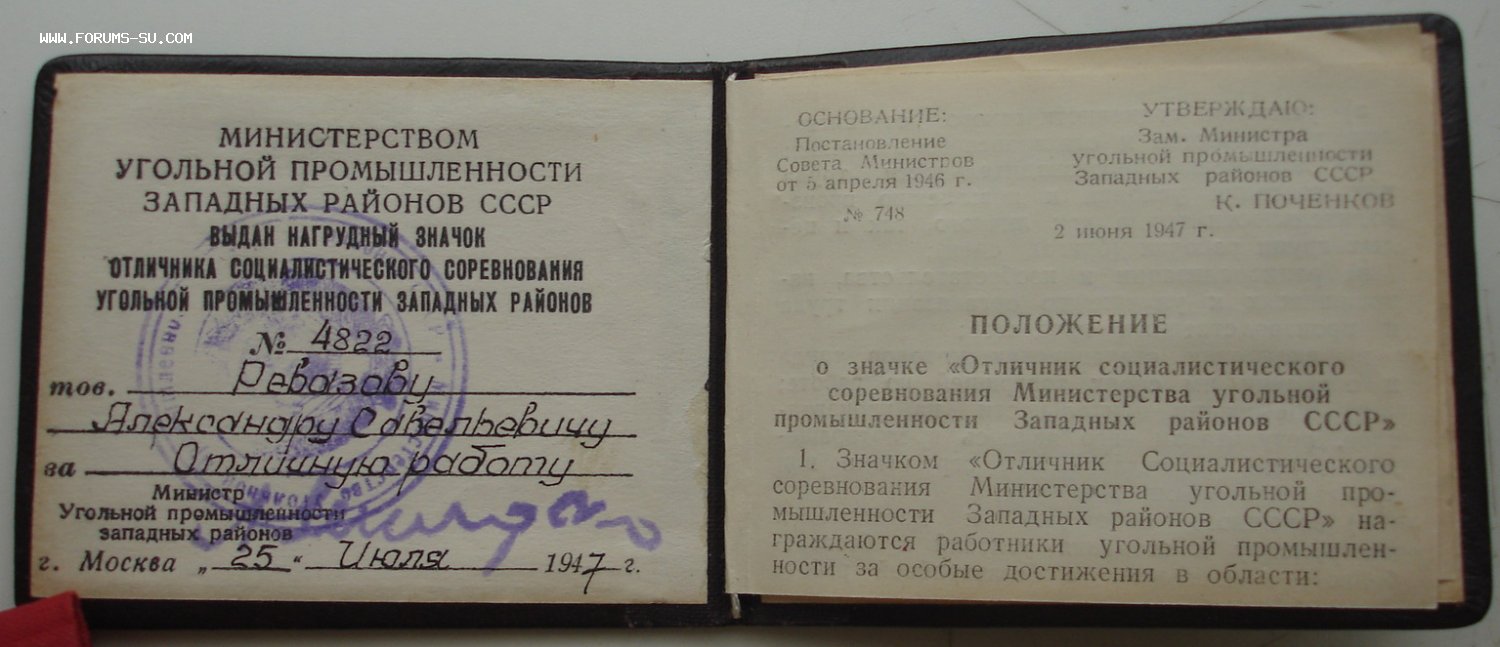 www.forums-su.com
МИНИСТЕРСТВОМ
УГОЛЬНОЙ ПРОМЫШЛЕННОСТИ
ЗАПАДНЫХ РАЙОНОВ СССР
ВЫДАН НАГРУДНЫЙ ЗНАЧОК
ОТЛИЧНИКА СОЦИАЛИСТИЧЕСКОГО СОРЕВНОВАНИЯ
УГОЛЬНОЙ ПРОМЫШЛЕННОСТИ ЗАПАДНЫХ РАЙОНОВ
№ 4822
тов. Ревазову
Александру Савельевичу
за Отличную работу
Министр
Угольной промышленности
западных районов
г. Москва „25“ Июля 1947 г.
ОСНОВАНИЕ:
Постановление
Совета Министров
от 5 апреля 1946 г.
№ 748
УТВЕРЖДАЮ:
Зам. Министра
угольной промышленности
Западных районов СССР
К. ПОЧЕНКОВ
2 июня 1947 г.
ПОЛОЖЕНИЕ
о значке «Отличник социалистического
соревнования Министерства угольной
промышленности Западных районов СССР»
1. Значком «Отличник Социалистического
соревнования Министерства угольной про-
мышленности Западных районов СССР» на-
граждаются работники угольной промышлен-
ности за особые достижения в области: